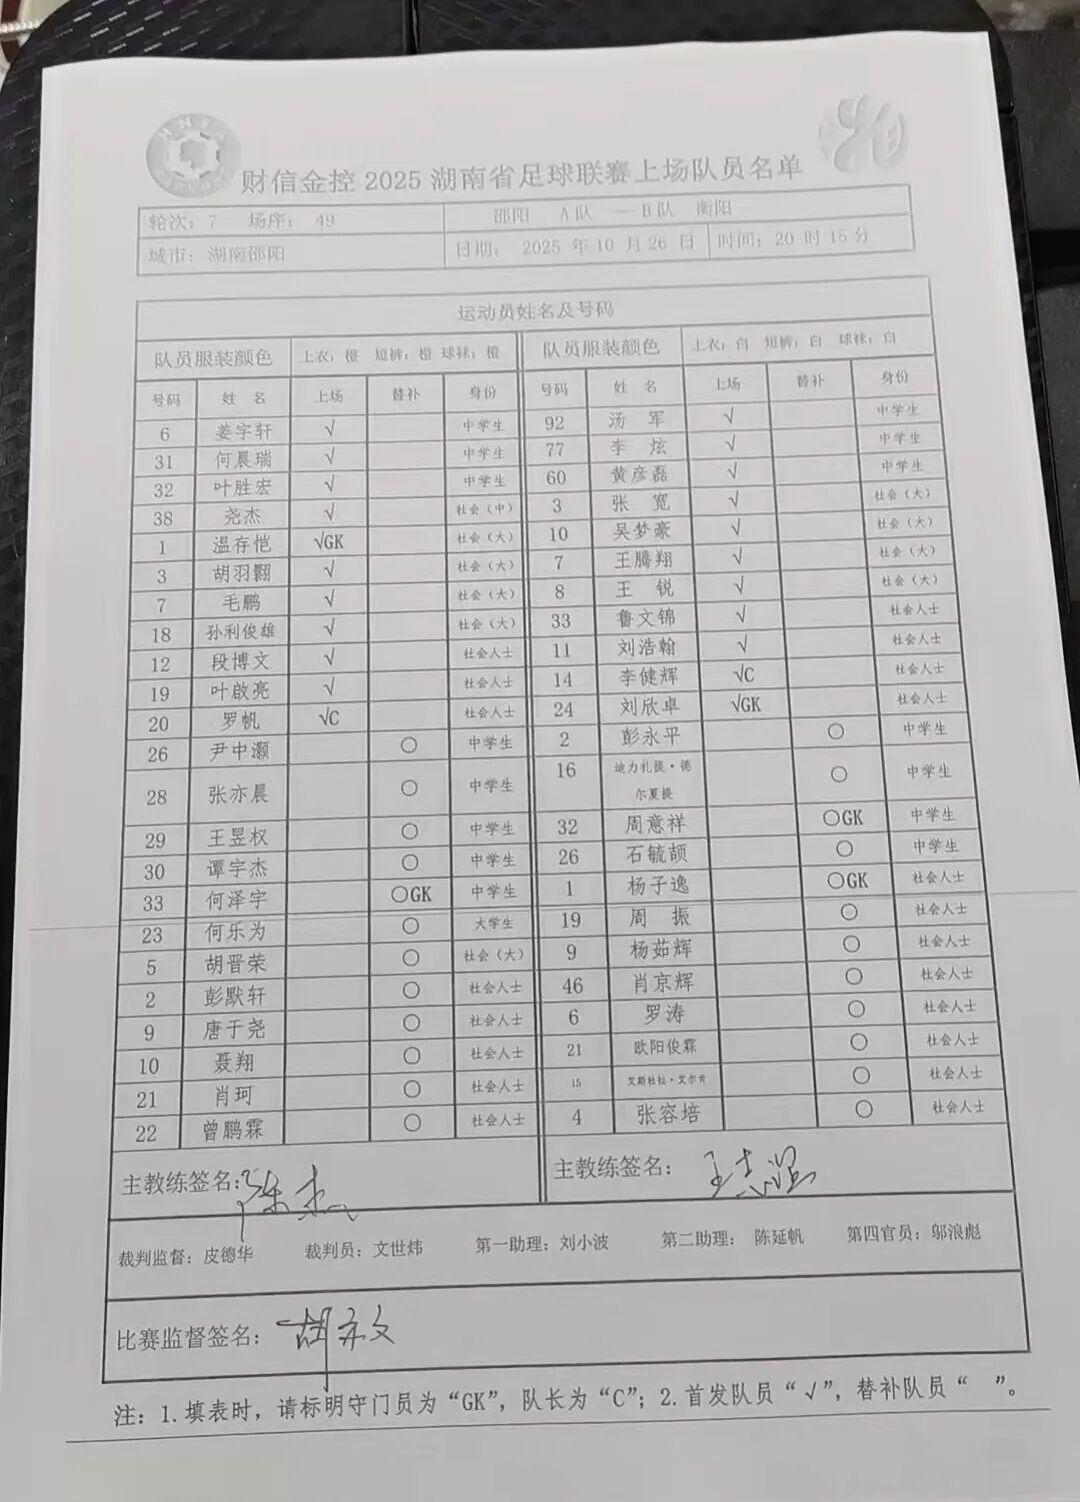 财信金控 2025 湖南省足球联赛上场队员名单
轮次：7 场序： 49 邵阳 A 队 — B 队 衡阳
城市：湖南邵阳 日期： 2025 年 10 月 26 日 时间：20 时 15 分
运动员姓名及号码
队员服装颜色 上衣：橙 短裤：橙 球袜：橙 队员服装颜色 上衣：白 短裤：白 球袜：白
号码 姓 名 上场 替补 身份 号码 姓 名 上场 替补 身份
6 姜宇轩 √ 中学生 92 汤 军 √ 中学生
31 何晨瑞 √ 中学生 77 李 炫 √ 中学生
32 叶胜宏 √ 中学生 60 黄彦磊 √ 中学生
38 尧杰 √ 社会（中） 3 张 宽 √ 社会（大）
1 温存恺 √GK 社会（大） 10 吴梦豪 √ 社会（大）
3 胡羽翾 √ 社会（大） 7 王腾翔 √ 社会（大）
7 毛鹏 √ 社会（大） 8 王 锐 √ 社会（大）
18 孙利俊雄 √ 社会（大） 33 鲁文锦 √ 社会人士
12 段博文 √ 社会人士 11 刘浩翰 √ 社会人士
19 叶啟亮 √ 社会人士 14 李健辉 √C 社会人士
20 罗帆 √C 社会人士 24 刘欣卓 √GK 社会人士
26 尹中灏 ○ 中学生 2 彭永平 ○ 中学生
28 张亦晨 ○ 中学生 16 迪力扎提·德尔夏提 ○ 中学生
29 王昱权 ○ 中学生 32 周意祥 ○GK 中学生
30 谭宇杰 ○ 中学生 26 石毓颉 ○ 中学生
33 何泽宇 ○GK 中学生 1 杨子逸 ○GK 社会人士
23 何乐为 ○ 大学生 19 周 振 ○ 社会人士
5 胡晋荣 ○ 社会（大） 9 杨茹辉 ○ 社会人士
2 彭默轩 ○ 社会人士 46 肖京辉 ○ 社会人士
9 唐于尧 ○ 社会人士 6 罗涛 ○ 社会人士
10 聂翔 ○ 社会人士 21 欧阳俊霖 ○ 社会人士
21 肖珂 ○ 社会人士 15 艾斯杜拉·艾尔肯 ○ 社会人士
22 曾鹏霖 ○ 社会人士 4 张容培 ○ 社会人士
主教练签名： 主教练签名：
裁判监督：皮德华 裁判员：文世炜 第一助理：刘小波 第二助理： 陈延帆 第四官员：邬浪彪
比赛监督签名：
注：1.填表时，请标明守门员为“GK”，队长为“C”；2.首发队员“√”，替补队员“ ”。